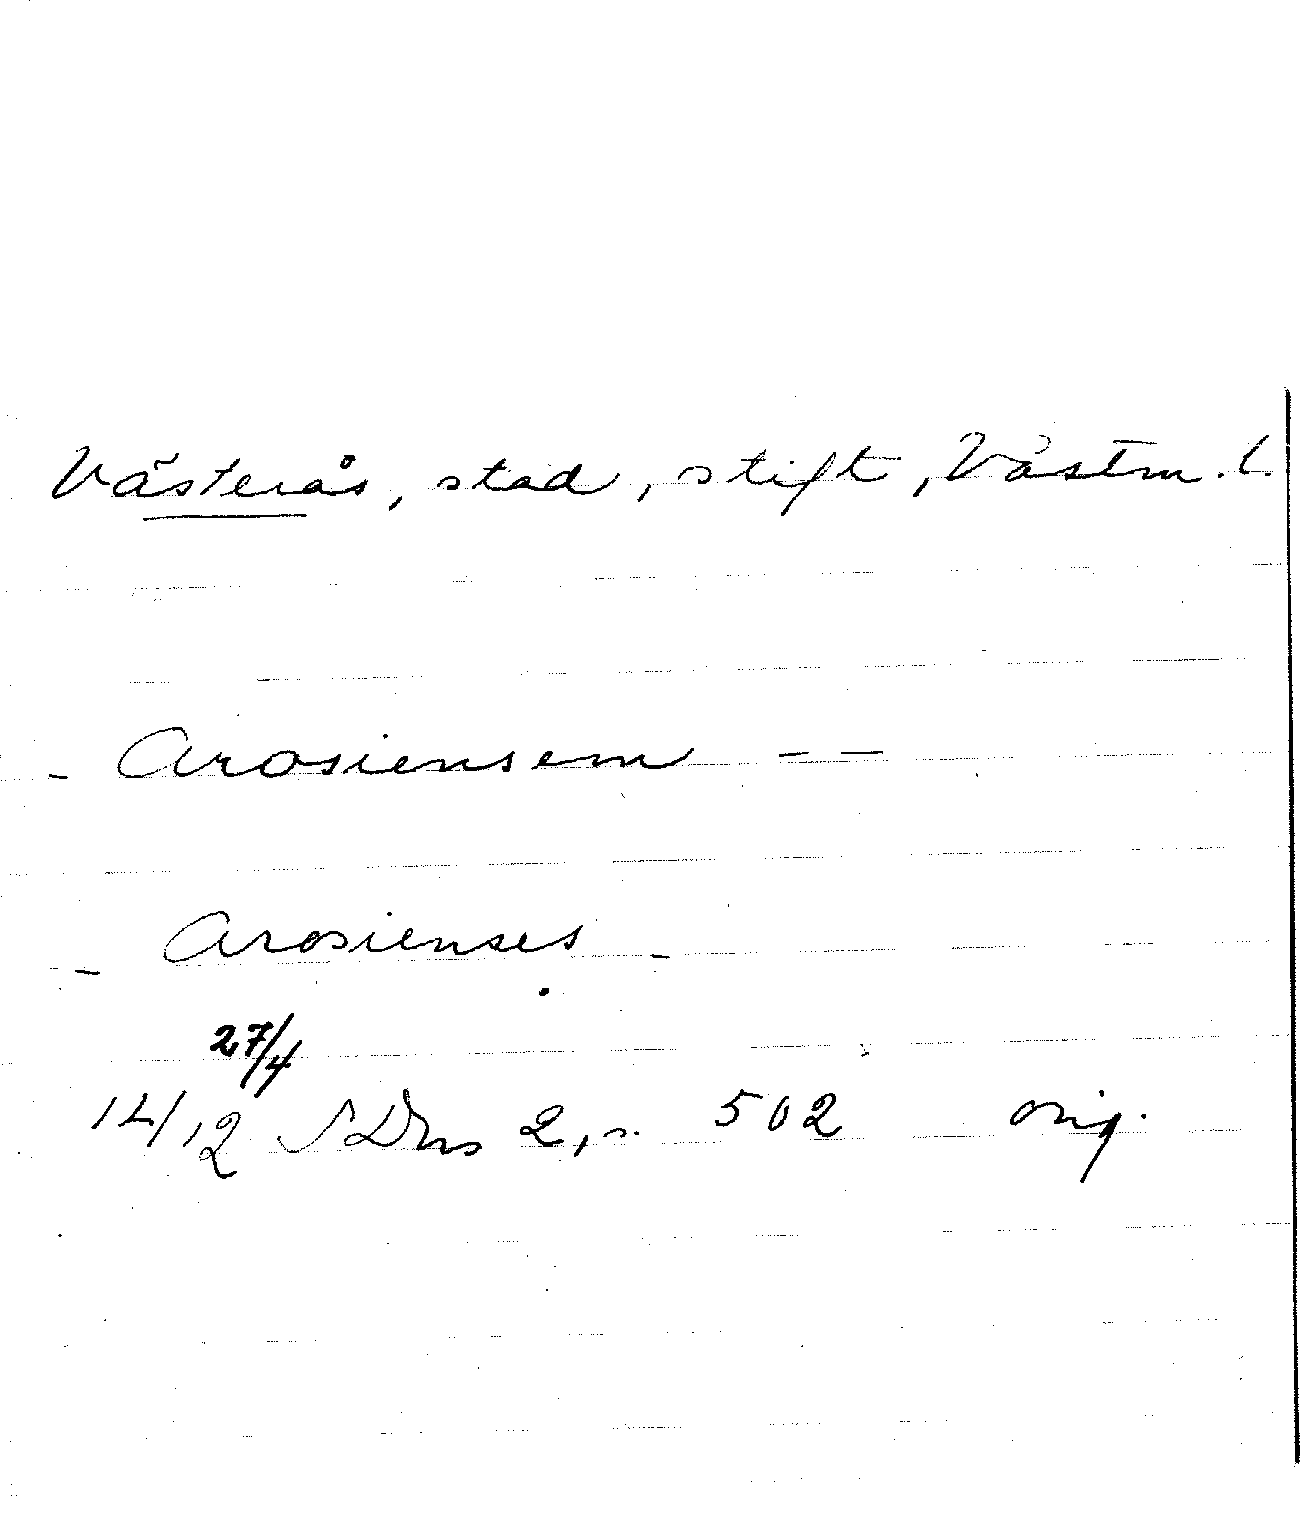 Västerås, stad, stift, Västm. l.
- Arosiensem - -
- Arosienses -
27/4
1412 SDns 2, s. 502 orig.